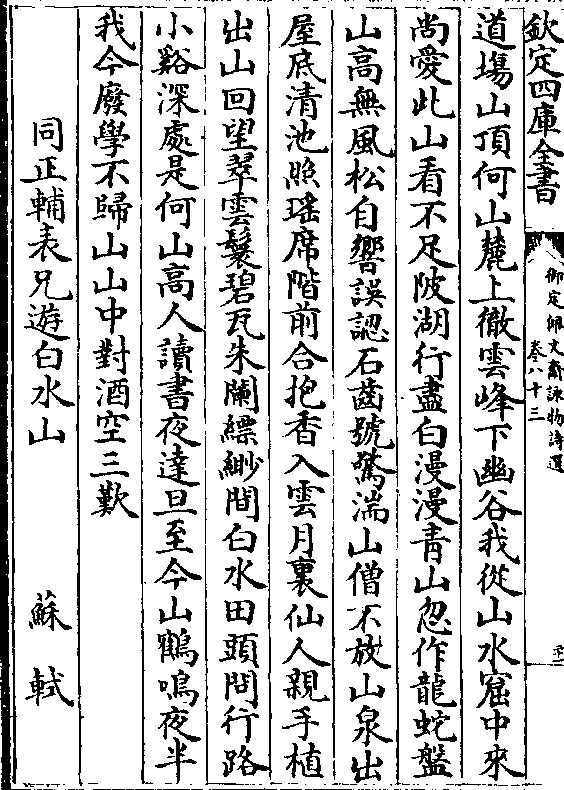 欽定四庫全書
御定佩文齋詠物詩選
卷八十三
道塲山頂何山麓上徹雲峰下幽谷我從山水窟中來
尚愛此山看不足陂湖行盡白漫漫青山忽作龍蛇盤
山高無風松自響誤認石齒號驚湍山僧不放山泉出
屋底清池照瑤席階前合抱香入雲月裏仙人親手植
出山回望翠雲鬟碧瓦朱闌縹緲間白水田頭問行路
小谿深處是何山高人讀書夜達旦至今山鶴鳴夜半
我今廢學不歸山山中對酒空三歎
同正輔表兄遊白水山　蘇軾